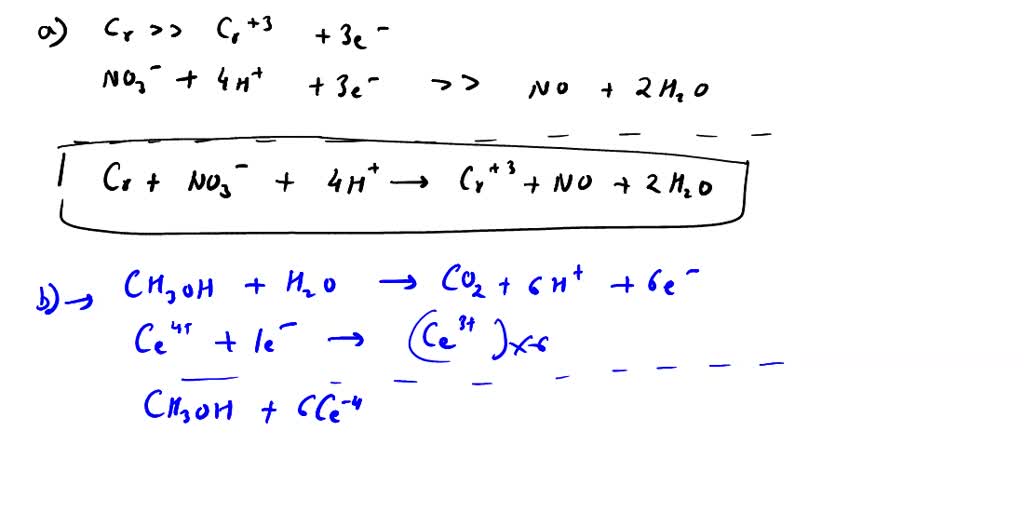 a) Cr >> Cr⁺³ + 3e⁻
NO₃⁻ + 4H⁺ + 3e⁻ >> NO + 2H₂O
Cr + NO₃⁻ + 4H⁺ → Cr⁺³ + NO + 2H₂O
b) → CH₃OH + H₂O → CO₂ + 6H⁺ + 6e⁻
Ce⁴⁺ + 1e⁻ → (Ce³⁺)x6
CH₃OH + 6Ce⁻⁴